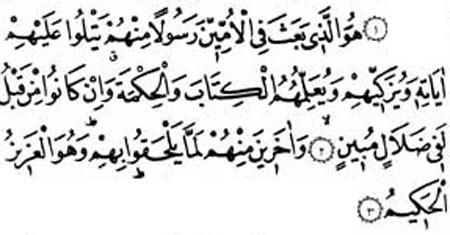 ﴿١﴾ هُوَ الَّذ۪ي بَعَثَ فِي الْاُمِّيّ۪نَ رَسُولًا مِنْهُمْ يَتْلُوا عَلَيْهِمْ
اٰيَاتِه۪ وَيُزَكّ۪يهِمْ وَيُعَلِّمُهُمُ الْكِتَابَ وَالْحِكْمَةَۗ وَاِنْ كَانُوا مِنْ قَبْلُ
لَف۪ي ضَلَالٍ مُب۪ينٍۙ ﴿٢﴾ وَاٰخَر۪ينَ مِنْهُمْ لَمَّا يَلْحَقُوا بِهِمْۜ وَهُوَ الْعَز۪يزُ
الْحَك۪يمُ ﴿٣﴾